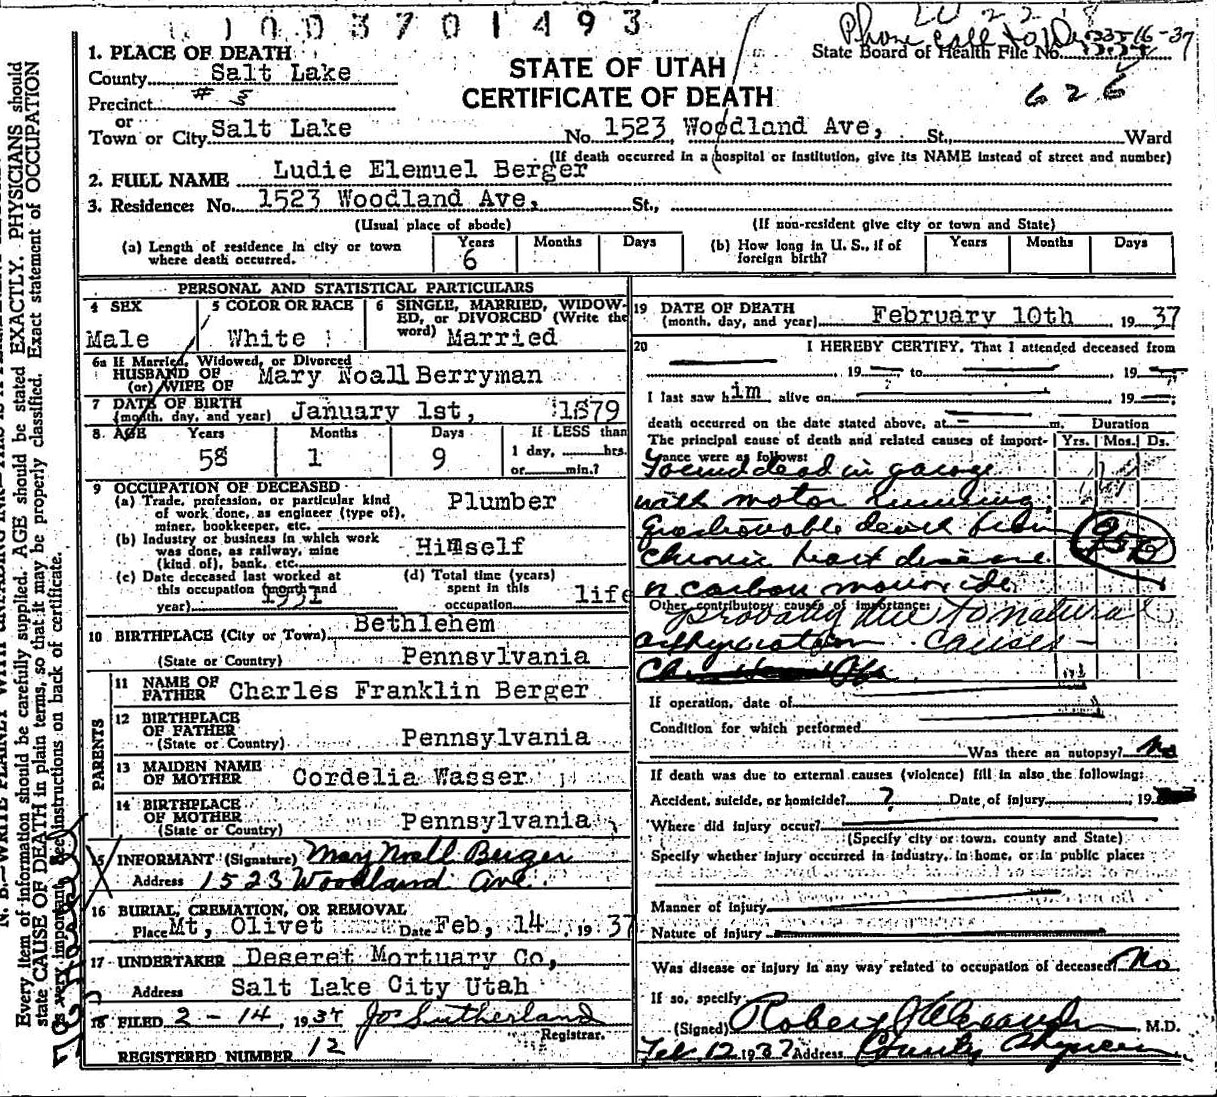 1003701493
Phone call to Dr 3-16-37
State Board of Health File No.
626
STATE OF UTAH
CERTIFICATE OF DEATH
1. PLACE OF DEATH
County Salt Lake
Precinct # 3
or
Town or City Salt Lake No. 1523 Woodland Ave, St., Ward
(If death occurred in a hospital or institution, give its NAME instead of street and number)
2. FULL NAME Ludie Elemuel Berger
3. Residence: No. 1523 Woodland Ave, St.,
(Usual place of abode) (If non-resident give city or town and State)
(a) Length of residence in city or town where death occurred. Years 6 Months Days
(b) How long in U. S., if of foreign birth? Years Months Days
PERSONAL AND STATISTICAL PARTICULARS
4 SEX Male
5 COLOR OR RACE White
6 SINGLE, MARRIED, WIDOW-
ED, or DIVORCED (Write the
word) Married
6a If Married, Widowed, or Divorced
HUSBAND OF Mary Noall Berryman
(or) WIFE OF
7 DATE OF BIRTH
(month, day, and year) January 1st, 1879
8 AGE Years 58 Months 1 Days 9 If LESS than
1 day, hrs.
or min.?
9 OCCUPATION OF DECEASED
(a) Trade, profession, or particular kind
of work done, as engineer (type of),
miner, bookkeeper, etc. Plumber
(b) Industry or business in which work
was done, as railway, mine
(kind of), bank, etc. Himself
(c) Date deceased last worked at
this occupation (month and
year) 1931
(d) Total time (years)
spent in this
occupation life
10 BIRTHPLACE (City or Town) Bethlehem
(State or Country) Pennsylvania
PARENTS
11 NAME OF
FATHER Charles Franklin Berger
12 BIRTHPLACE
OF FATHER
(State or Country) Pennsylvania
13 MAIDEN NAME
OF MOTHER Cordelia Wasser
14 BIRTHPLACE
OF MOTHER
(State or Country) Pennsylvania
15 INFORMANT (Signature) Mary Noall Berger
Address 1523 Woodland Ave.
16 BURIAL, CREMATION, OR REMOVAL
Place Mt, Olivet Date Feb, 14, 1937
17 UNDERTAKER Deseret Mortuary Co,
Address Salt Lake City Utah
18 FILED 2-14, 1937 Jos Sutherland
Registrar.
REGISTERED NUMBER 12
19 DATE OF DEATH
(month, day, and year) February 10th 1937
20 I HEREBY CERTIFY, That I attended deceased from
, 19 to , 19
I last saw him alive on , 19 ;
death occurred on the date stated above, at m. Duration
The principal cause of death and related causes of import-
ance were as follows: Yrs. Mos. Ds.
Found dead in garage
with motor running.
Questionable death from
chronic heart disease
or carbon monoxide
Other contributory causes of importance:
probably due to natural
asphyxiation causes-
If operation, date of
Condition for which performed
Was there an autopsy? No
If death was due to external causes (violence) fill in also the following:
Accident, suicide, or homicide? ? Date of injury , 19
Where did injury occur?
(Specify city or town, county and State)
Specify whether injury occurred in industry, in home, or in public place:
Manner of injury
Nature of injury
Was disease or injury in any way related to occupation of deceased? No
If so, specify
(Signed) Robert Alexander, M.D.
Feb 12 1937 Address County Physician
Every item of information should be carefully supplied. AGE should be stated EXACTLY. PHYSICIANS should
state CAUSE OF DEATH in plain terms, so that it may be properly classified. Exact statement of OCCUPATION
is very important. See instructions on back of certificate.